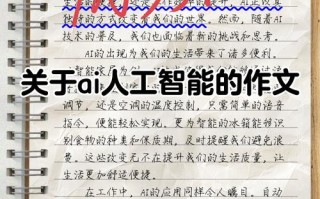 独特的方式改变着我们的世界。然而，随着AI
技术的普及，我们也面临着新的挑战和思考。
AI的出现为我们的生活带来了诸多便利。
关于ai人工智能的作文
调节，还是空调的温度控制，只需简单的语音
指令，便能轻松实现。更为智能的冰箱能够识
别食物的种类和保质期，及时提醒我们避免浪
费。这些改变无不在提升我们的生活质量，让
生活更加舒适便捷。
在工作中，AI的应用同样令人瞩目。自动